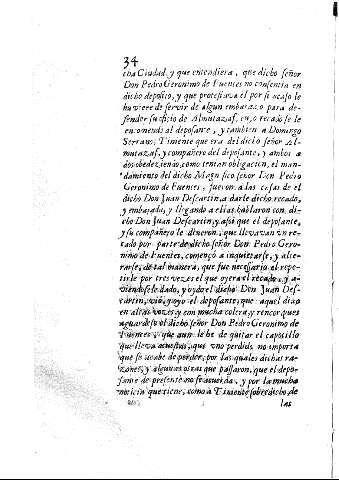 34
cha Ciudad, y que entendiera, que dicho señor
Don Pedro Geronimo de Fuentes no consentia en
dicho deposito, y que protestava el por si acaso le
huviere de servir de algun embarazo para de-
fender su oficio de Almutazaf, cuyo recado se le
encomendó al deposante, y tambien a Domingo
Serrano, Timente que era del dicho señor Al-
mutazaf, y compañero del deposante, y ambos a
dos obedeziendo, como tenian obligacion, el man-
damiento del dicho Magnifico señor Don Pedro
Geronimo de Fuentes, fueron a las casas de el
dicho Don Juan Descartin, a darle dicho recado,
y embajada, y llegando a ellas hablaron con di-
cho Don Juan Descartin, y assi, que el deposante,
y su compañero le dixeron, que llevavan un re-
cado por parte de dicho señor Don Pedro Gero-
nimo de Fuentes, començó a inquietarse, y alte-
rarse, de tal manera, que fue necesario el repe-
tirle por tres vezes el que oyera el recado, y a-
viendosele dado, y oydo el dicho Don Juan Des-
cartin, vió, y oyó el deposante, que aquel dixo
en altas vozes, y con mucha colera, y rencor, ques
aguardese el dicho señor Don Pedro Geronimo de
Fuentes, que aun le he de quitar el capotillo
que lleva acuestas, que uno perdido no importa
que se acabe de perder, por las quales dichas ra-
zones, y algunas otras que passaron, que el depo-
sante de presente no se acuerda, y por la mucha
noticia que tiene, como a Timente sobredicho, de
las